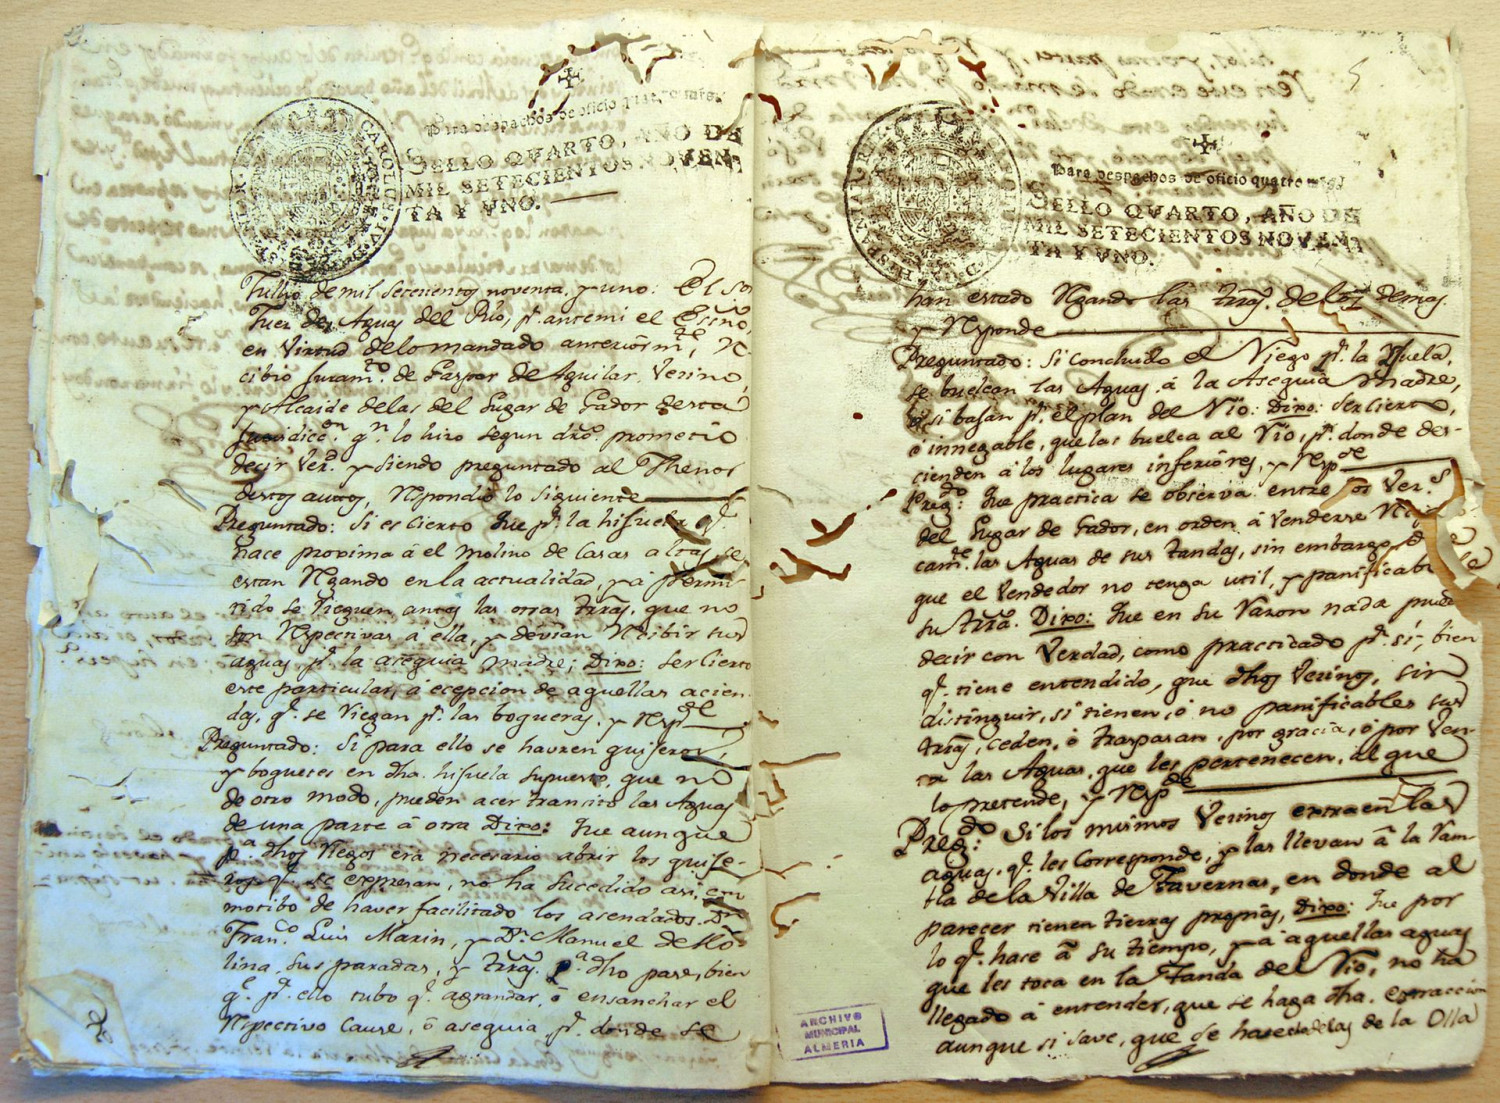 Para despachos de oficio quatro mrs.
SELLO QVARTO, AÑO DE
MIL SETECIENTOS NOVEN
TA Y VNO.
Jullio de mil setecientos noventa, y uno: El Sor
Juez de Aguas del Rio, pr. antemi el Essno
en Virtud delo mandado anteriormte, Re
cibio Juramto. de Gaspar de Aguilar, Vecino,
y Alcaide delas del Lugar de Gador desta
Jurisdiccon. qn. lo hizo segun dro. prometio
decir Verd. y siendo preguntado al Thenor
destos autos, Respondio lo siguiente
Preguntado: Si es cierto que pr. la hijuela qe.
nace proxima á el molino de Casas altas, se
estan Regando en la actualidad, y á permi-
tido se rieguen antes las otras trras, que no
son Respectivas a ella, y devian Recibir sus
aguas pr. la asequia madre; Dixo: ser cierto
este particular, á ecepcion de aquellas acien-
das, qe. se Riegan pr. las bogueras, y Respde
Preguntado: Si para ello se havren quijeros,
y boquetes en dha. hijuela supuesto, que no
de otro modo, pueden acer transito las Aguas
de una parte á otra Dixo: Que aunque
pa. dhos Riegos era necesario abrir los quije-
ros qe. se expresan, no ha sucedido asi, con
motibo de haver facilitado los asendados Dn
Franco. Luis Marin, y Dn. Manuel de Mo-
lina, sus paradas, y trras. pa. dho pase, bien
qe. pr. ello tubo qe. agrandar, ó ensanchar el
Respectivo Cauze, ó asequia pr. donde se
5
Para despachos de oficio quatro mrs.
SELLO QVARTO, AÑO DE
MIL SETECIENTOS NOVEN
TA Y VNO.
han estado Rgando las trras. de los demas
y Responde
Preguntado: Si concluido el Riego pr. la Yjuela,
se buelcan las Aguas á la Asequia madre,
ó si bajan pr. el plan del Rio: Dixo: ser cierto,
é innegable, que las buelca al Rio, pr. donde des-
cienden á los lugares inferiores, y Respde
Pregdo: Que practica se observa entre los Vers.
del Lugar de Gador, en orden á venderse
camte. las Aguas de sus tandas, sin embargo
que el Vendedor no tenga util, y panificab
su trra. Dixo: Que en su razon nada puede
decir con Verdad, como practicado pr. sí, bien
qe. tiene entendido, que dhos Vecinos, sin
distinguir, si tienen, ó no panificables sus
trras, ceden, ó traspasan, por gracia, ó por Ven-
ta las Aguas, que les pertenecen, al que
lo pretende, y Respde
Pregdo: Si los mismos Vecinos extraén las
aguas, qe. les Corresponde, y las llevan á la Ram-
bla de la Villa de Tavernas, en donde al
parecer tienen tierras propias, Dixo: Que por
lo qe. hace á su tiempo, y á aquellas aguas
que les toca en la Tanda del Rio, no ha
llegado á entender, que se haga dha. extraccion
aunque si save, que se hace delas de la Olla
ARCHIVO
MUNICIPAL
ALMERIA